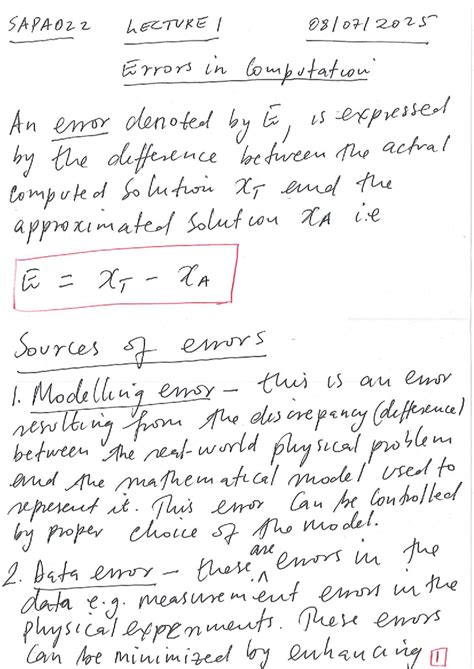 SAPA022 LECTURE 1 08/07/2025
Errors in Computation
An error denoted by E, is expressed
by the difference between the actual
computed solution x_T and the
approximated solution x_A i.e
E = x_T - x_A
Sources of errors
1. Modelling error – this is an error
resulting from the discrepancy (difference)
between the real-world physical problem
and the mathematical model used to
represent it. This error can be controlled
by proper choice of the model.
2. Data error – these are errors in the
data e.g. measurement errors in the
physical experiments. These errors
can be minimized by enhancing 1